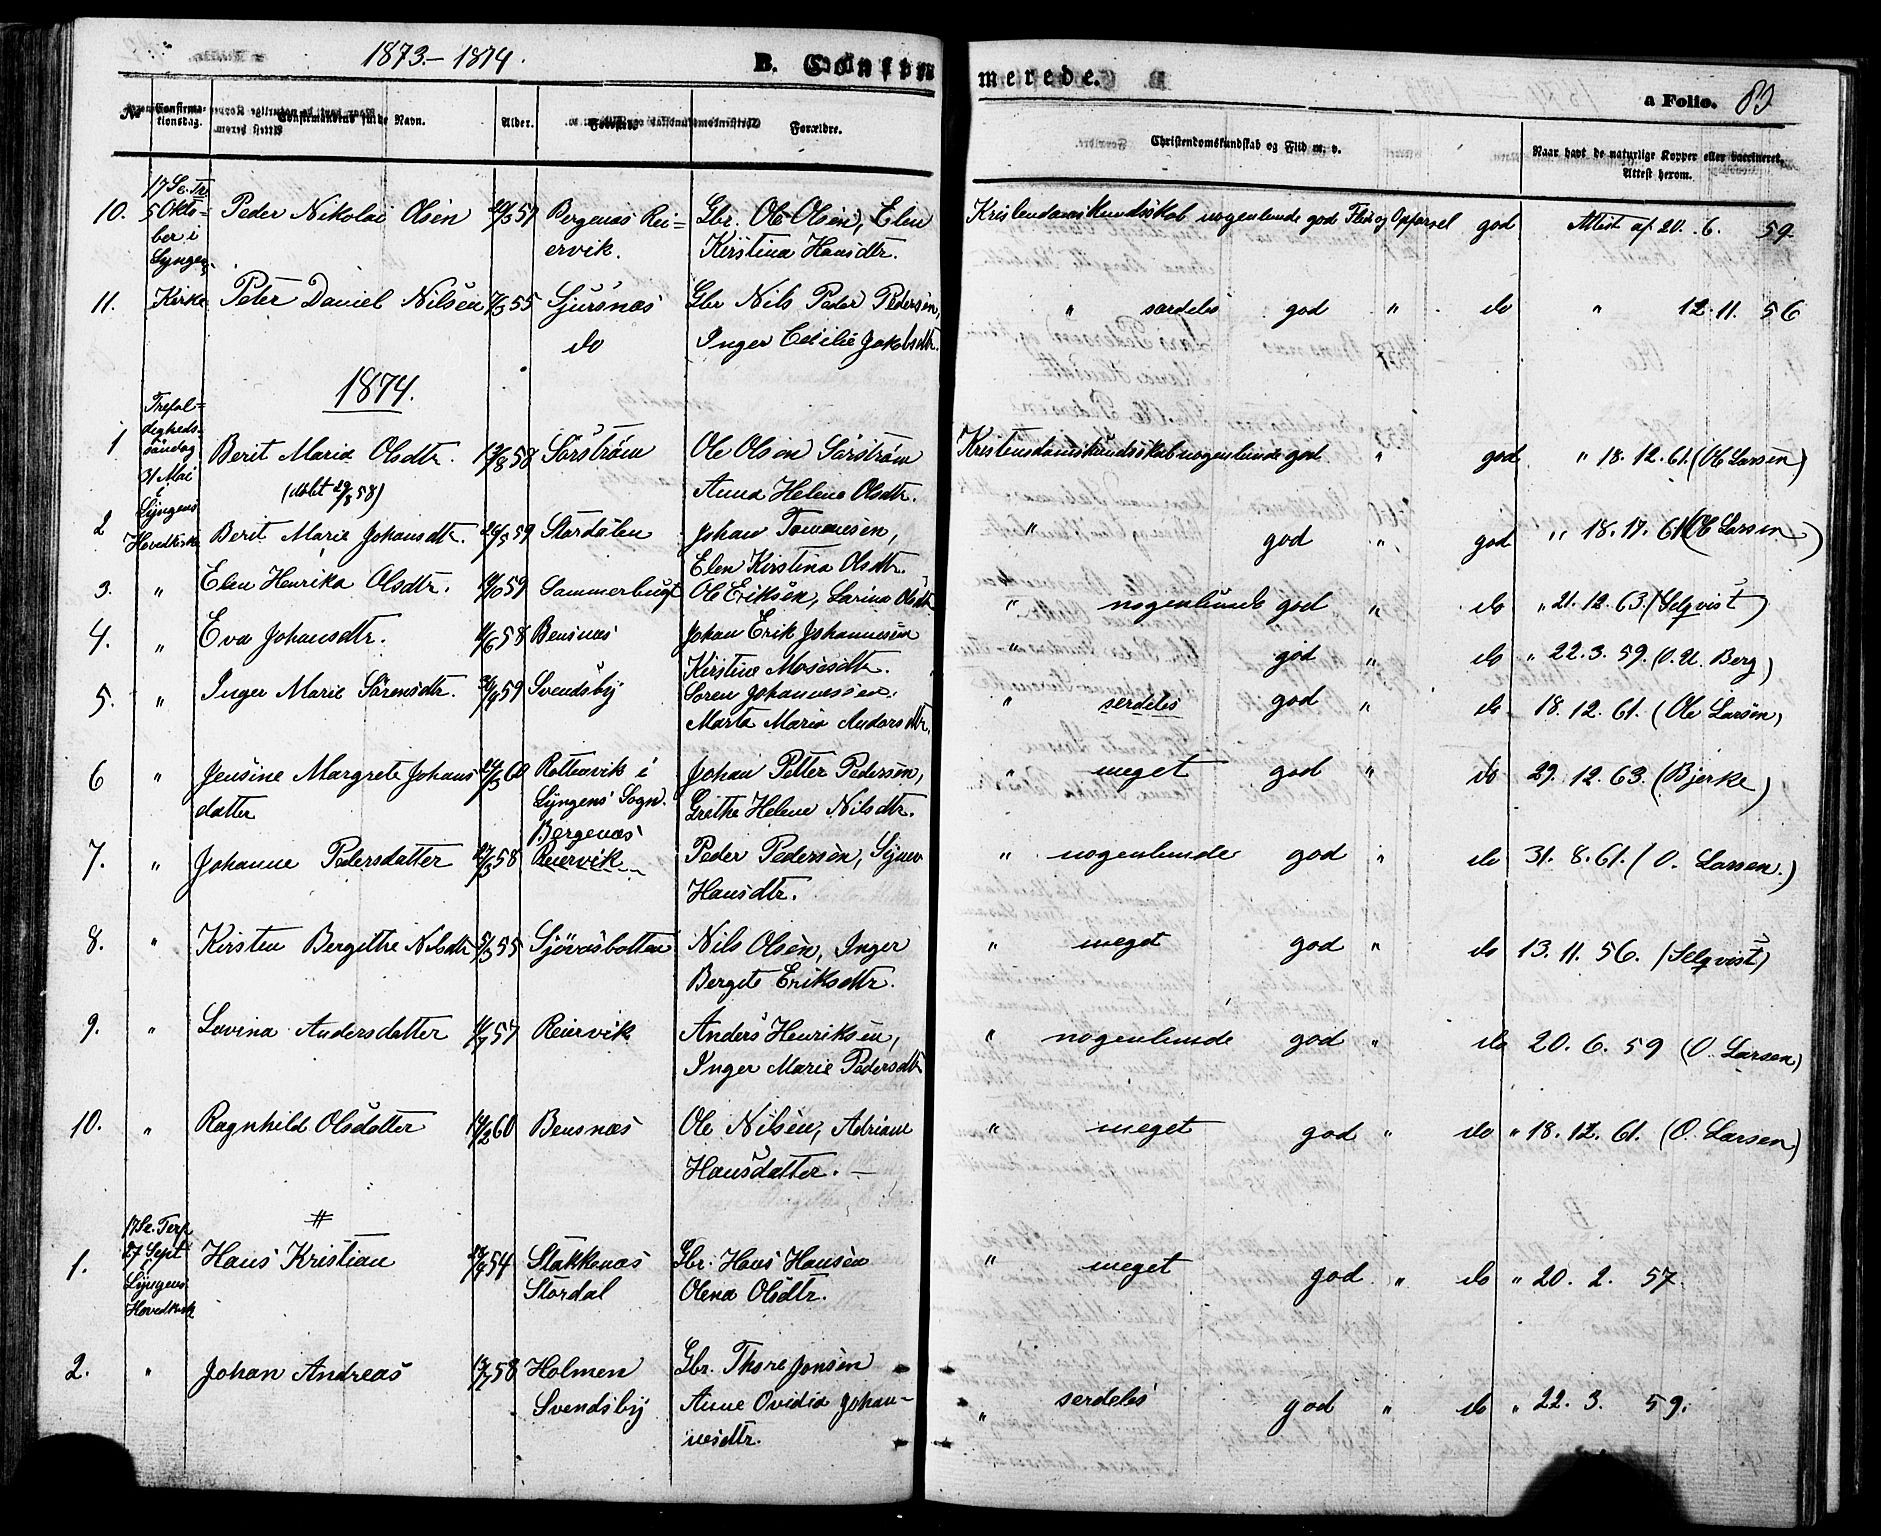 1873.-1874.
B. Confirmerede.
a Folio. 83
No Confirmationsdag. Confirmandens fulde Navn. Alder. Forældre. Christendomskundskab og Flid m. v. Naar havt de naturlige Kopper eller vaccineret, Attest herom.
10. 17 Se. Tr. 5 Oktober i Lyngens Peder Nikolai Olsen 57 Bergenæs Reiervik. Gbr. Ole Olsen, Elen Kirstina Hansdtr. Kristendomskundskab nogenlunde god Flid og Opførsel god Attest af 20. 6. 59.
11. Kirke Peter Daniel Nilsen 55 Sjursnæs do Gbr Nils Peder Pedersen, Inger Cecilie Jakobsdtr. " særdeles god " do " 12. 11. 56
1874.
1 Trefoldighedssøndag 31 Mai i Lyngens Hovedkirke Berit Maria Olsdtr. (døbt 29/8 58) 58 Sørstrøm Ole Olsen Sørstrøm Anna Helene Olsdtr. Kristendomskundskab nogenlunde god " god " 18. 12. 61. (Ole Larsen)
2 Berit Marie Johansdtr. 59 Stordalen Johan Tommesen, Elen Kirstina Olsdtr. " god " god " 18. 17. 61 (Ole Larsen)
3. " Elen Henrika Olsdtr. 59 Sommerbugt Ole Eriksen, Larina Olsdtr " nogenlunde god " do " 21. 12. 63. (Selqvist)
4. " Eva Johansdtr. 58 Bensnæs Johan Erik Johannesen Kirstine Mosesdtr. " god " do " 22. 3. 59. (O. U. Berg)
5. " Inger Marie Sørensdtr. 59 Svendsby Soren Johannesen, Marta Maria Andersdtr. " serdeles god " do 18. 12. 61. (Ole Larsen)
6 " Jensine Margrete Johansdatter 60 Rottenvik i Lyngens Sogn. Johan Petter Pedersen, Grethe Helene Nilsdtr. " meget god " do 29. 12. 63. (Bjerke)
7. " Johanne Pedersdatter 58 Bergenæs Reiervik Peder Pedersen, Hansdtr. " nogenlunde god " do 31. 8. 61. (O. Larsen.)
8. " Kirsten Bergithe Nilsdtr 55 Sjøvasbotten Nils Olsen, Inger Bergite Eriksdtr. " meget god " do 13. 11. 56. (Selqvist)
9. " Lovina Andersdatter 57 Reiervik Anders Henriksen, Inger Marie Pedersdtr " nogenlunde god " do 20. 6. 59 (O. Larsen)
10. " Ragnhild Olsdatter 60 Bensnæs Ole Nilsen, Adriane Hansdatter. " meget god " do " 18. 12. 61. (O. Larsen)
1. 17 Se. Tref 27 Sept i Lyngens Hovedkirk Hans Kristian 54 Stakkenæs Stordal Gbr. Hans Hansen Olena Olsdtr. " meget god " do " 20. 2. 57.
2. " Johan Andreas 58 Holmen Svendsby Gbr. Thore Jonsen Anne Ovidia Johannesdtr. " serdeles god " do " 22. 3. 59.